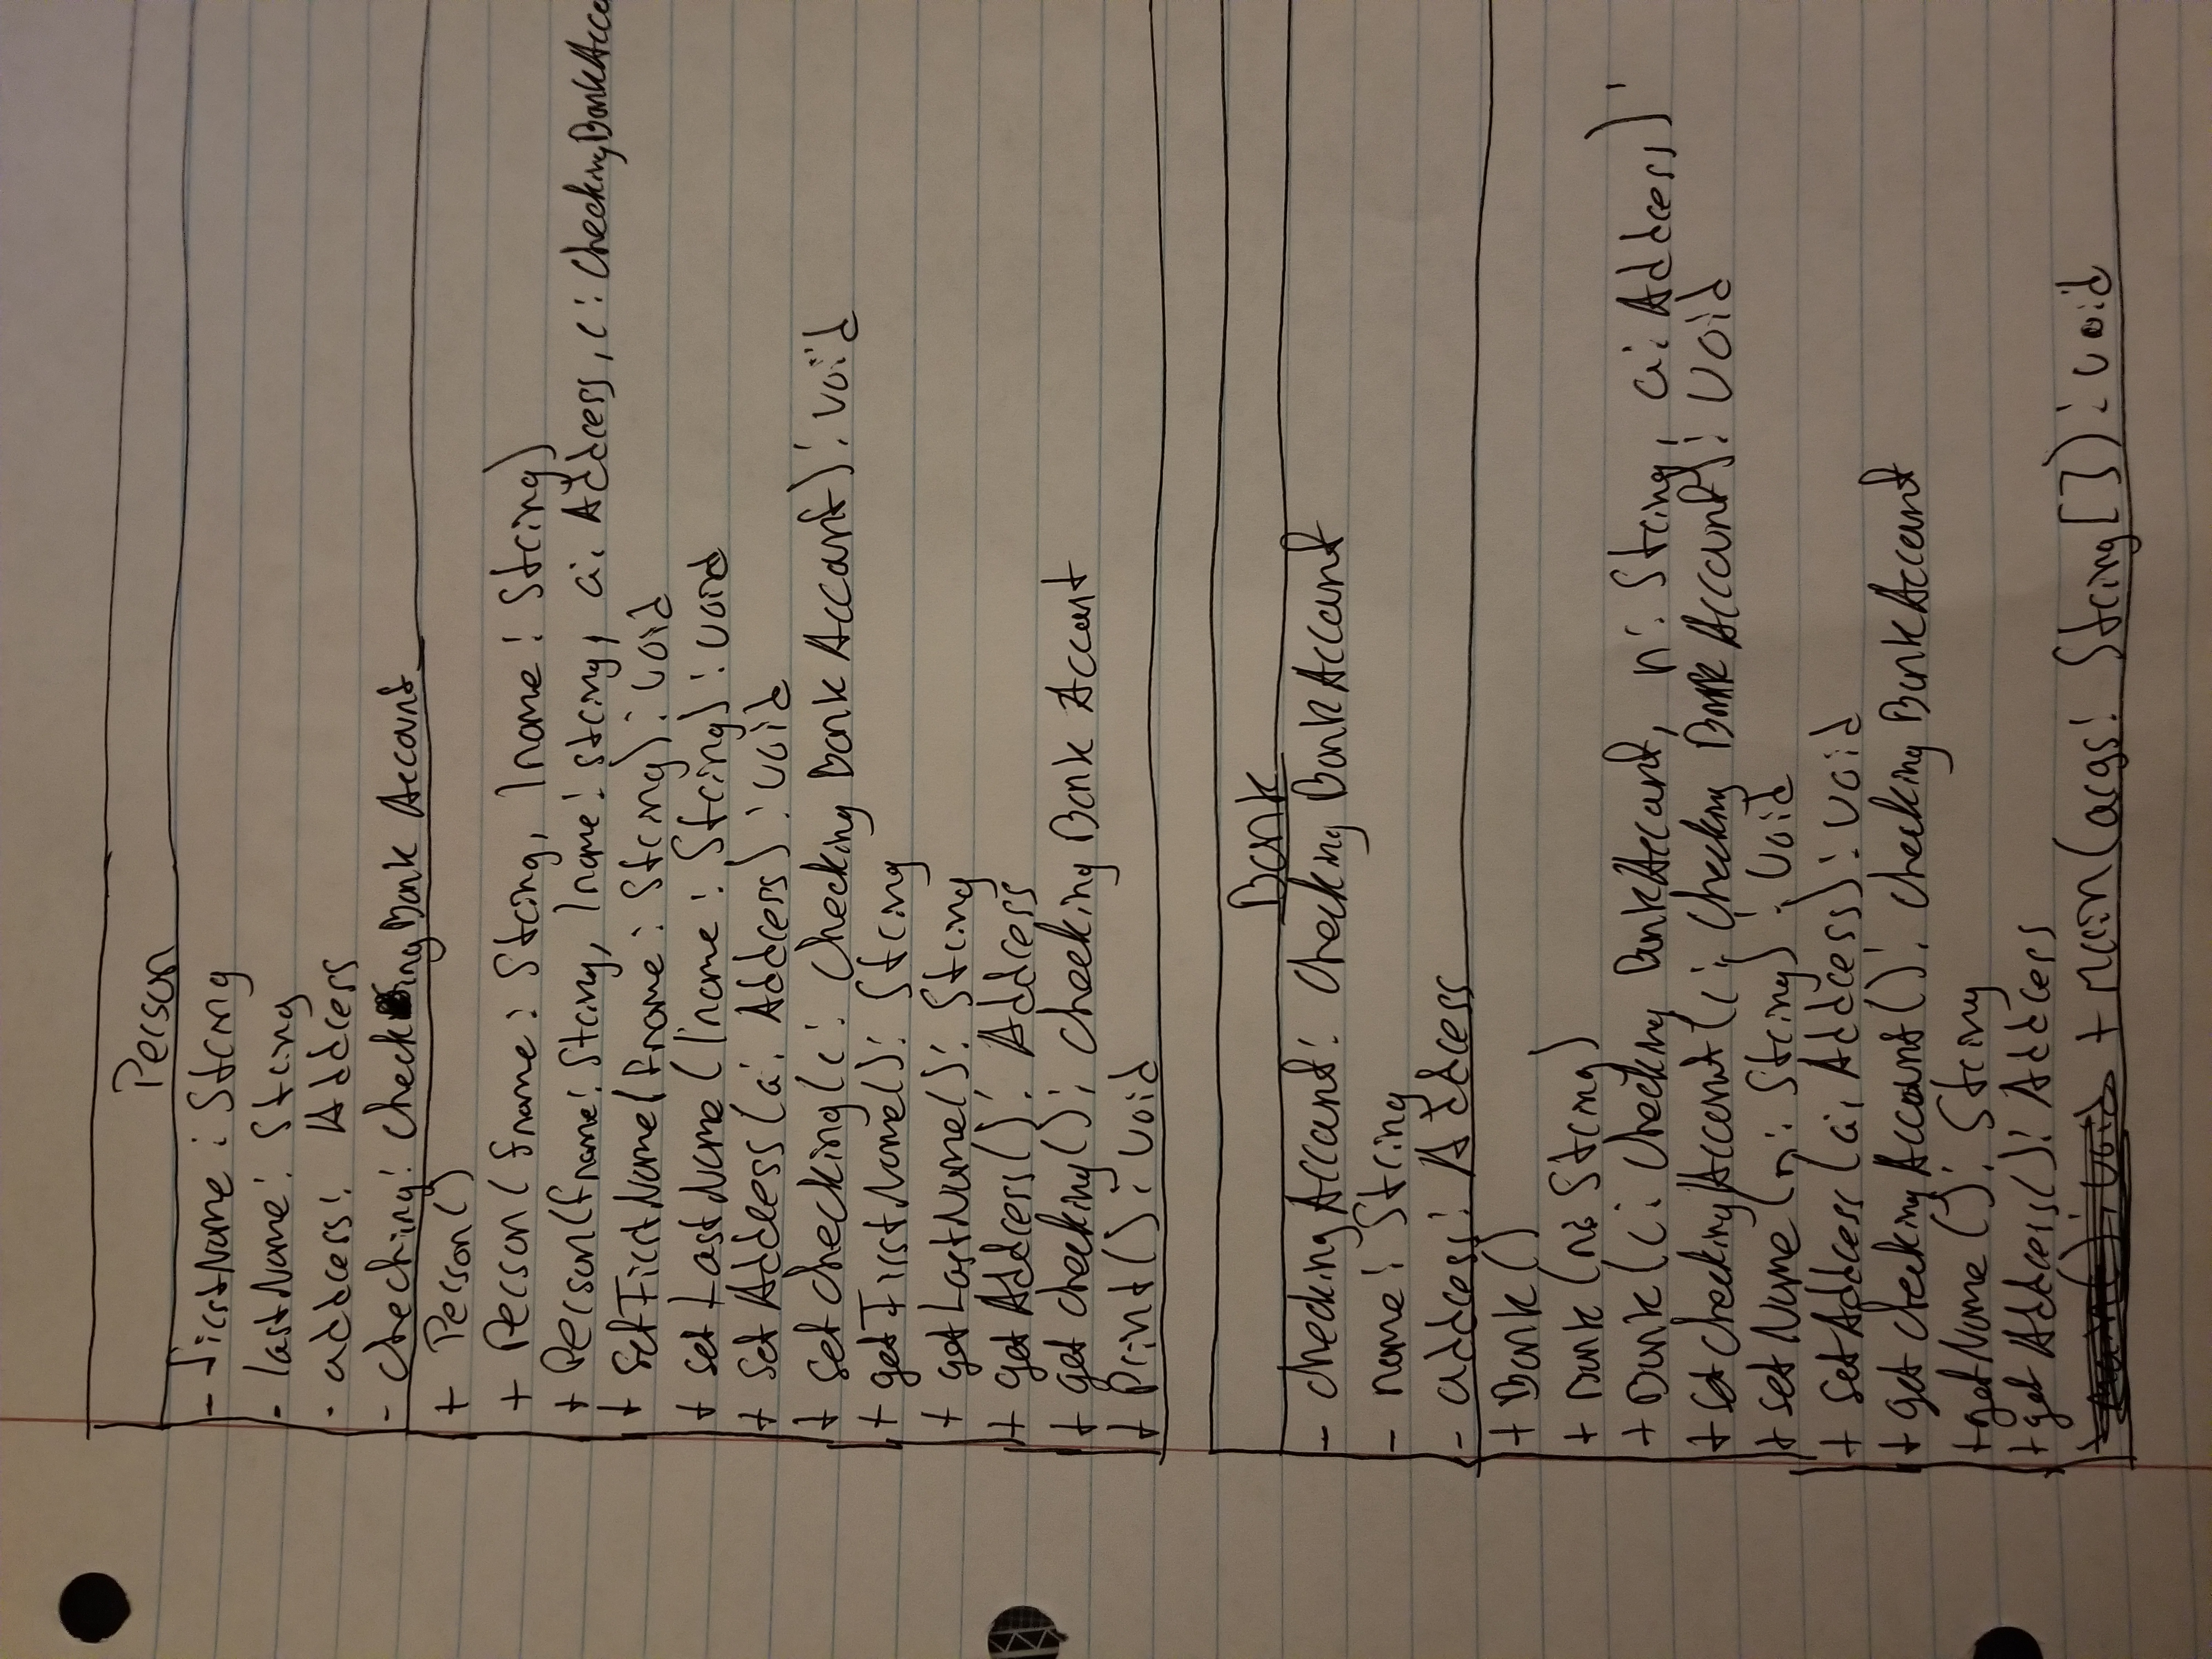 Person
- firstName : String
- lastName : String
- address : Address
- checking : CheckingBankAccount
+ Person()
+ Person(fname : String, lname : String)
+ Person(fname : String, lname : String, a : Address, c : CheckingBankAcco
+ setFirstName(fname : String) : void
+ setLastName(lname : String) : void
+ setAddress(a : Address) : void
+ setChecking(c : CheckingBankAccount) : void
+ getFirstName() : String
+ getLastName() : String
+ getAddress() : Address
+ getChecking() : CheckingBankAccount
+ Print() : void
Bank
- checkingAccount : CheckingBankAccount
- name : String
- address : Address
+ Bank()
+ Bank(n : String)
+ Bank(c : CheckingBankAccount, n : String, a : Address)
+ setCheckingAccount(c : CheckingBankAccount) : void
+ setName(n : String) : void
+ setAddress(a : Address) : void
+ getCheckingAccount() : CheckingBankAccount
+ getName() : String
+ getAddress() : Address
+ main() : void + main(args : String[]) : void